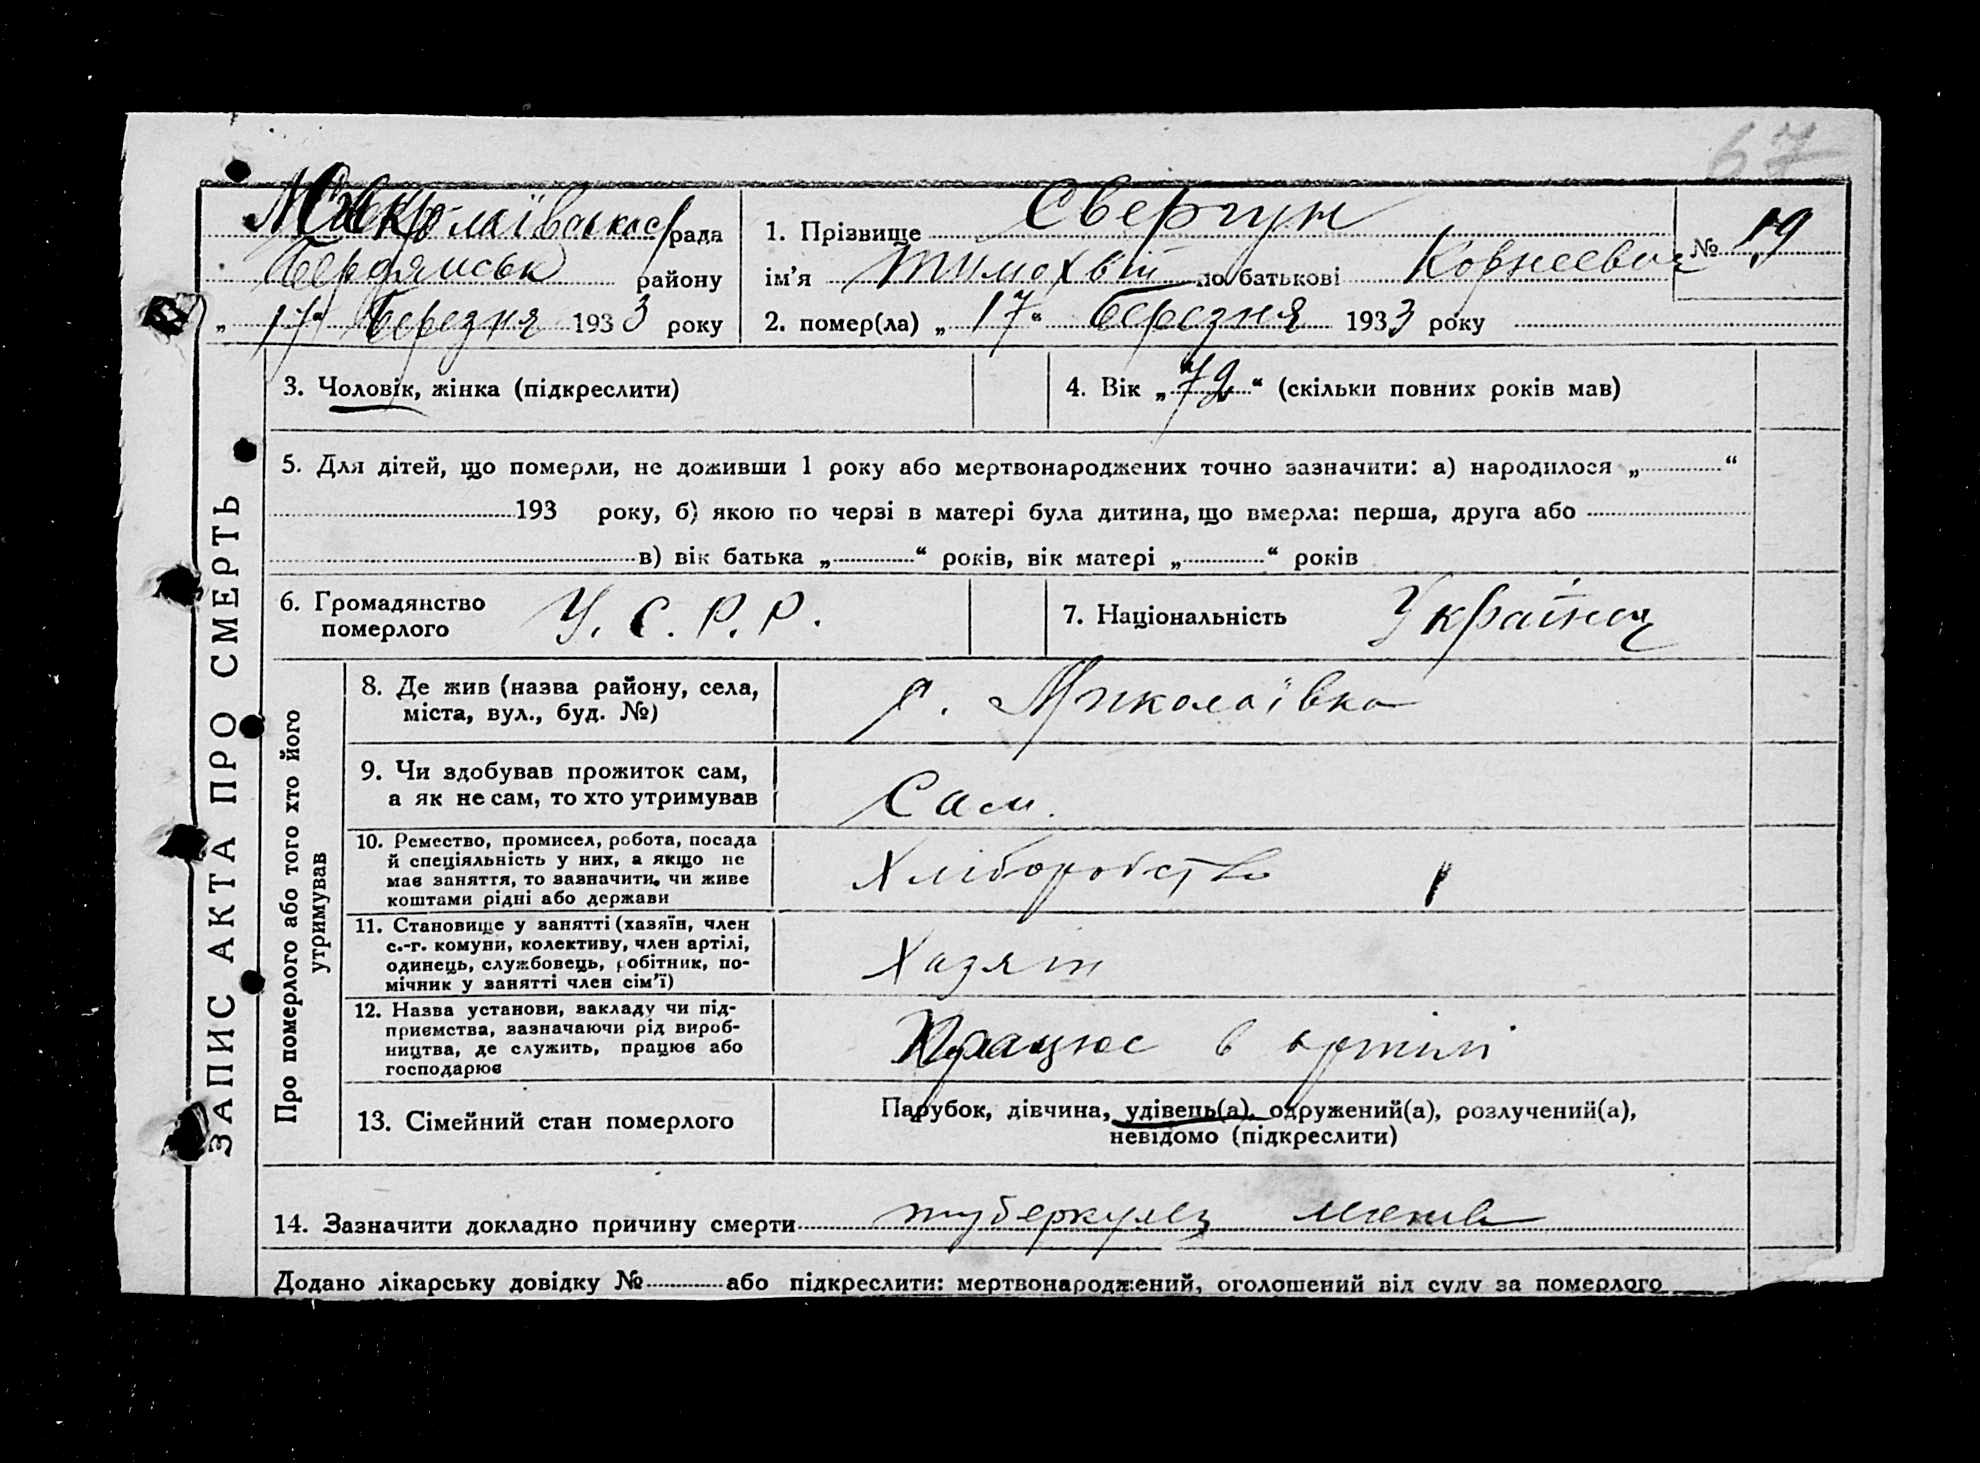 67
ЗАПИС АКТА ПРО СМЕРТЬ
Миколаївська рада
Бердянськ району
„17“ Березня 1933 року
1. Прізвище Свергун
№ 19
ім’я Тимохвій по батькові Корнеевич
2. помер(ла) „17“ березня 1933 року
3. Чоловік, жінка (підкреслити)
4. Вік „72“ (скільки повних років мав)
5. Для дітей, що померли, не доживши 1 року або мертвонароджених точно зазначити: а) народилося „ “
193 року, б) якою по черзі в матері була дитина, що вмерла: перша, друга або
в) вік батька „ “ років, вік матері „ “ років
6. Громадянство
померлого
У. С. Р. Р.
7. Національність Українец
Про померлого або того хто його
утримував
8. Де жив (назва району, села,
міста, вул., буд. №)
с. Миколаївка
9. Чи здобував прожиток сам,
а як не сам, то хто утримував
Сам.
10. Ремество, промисел, робота, посада
й спеціяльність у них, а якщо не
має заняття, то зазначити, чи живе
коштами рідні або держави
Хліборобство
11. Становище у занятті (хазяїн, член
с.-г. комуни, колективу, член артілі,
одинець, службовець, робітник, по-
мічник у занятті член сім’ї)
Хазяін
12. Назва установи, закладу чи під-
приємства, зазначаючи рід вироб-
ництва, де служить, працює або
господарює
Працює в артилі
13. Сімейний стан померлого
Парубок, дівчина, удівець(а), одружений(а), розлучений(а),
невідомо (підкреслити)
14. Зазначити докладно причину смерти туберкулез
Додано лікарську довідку № або підкреслити: мертвонароджений, оголошений від суду за померлого